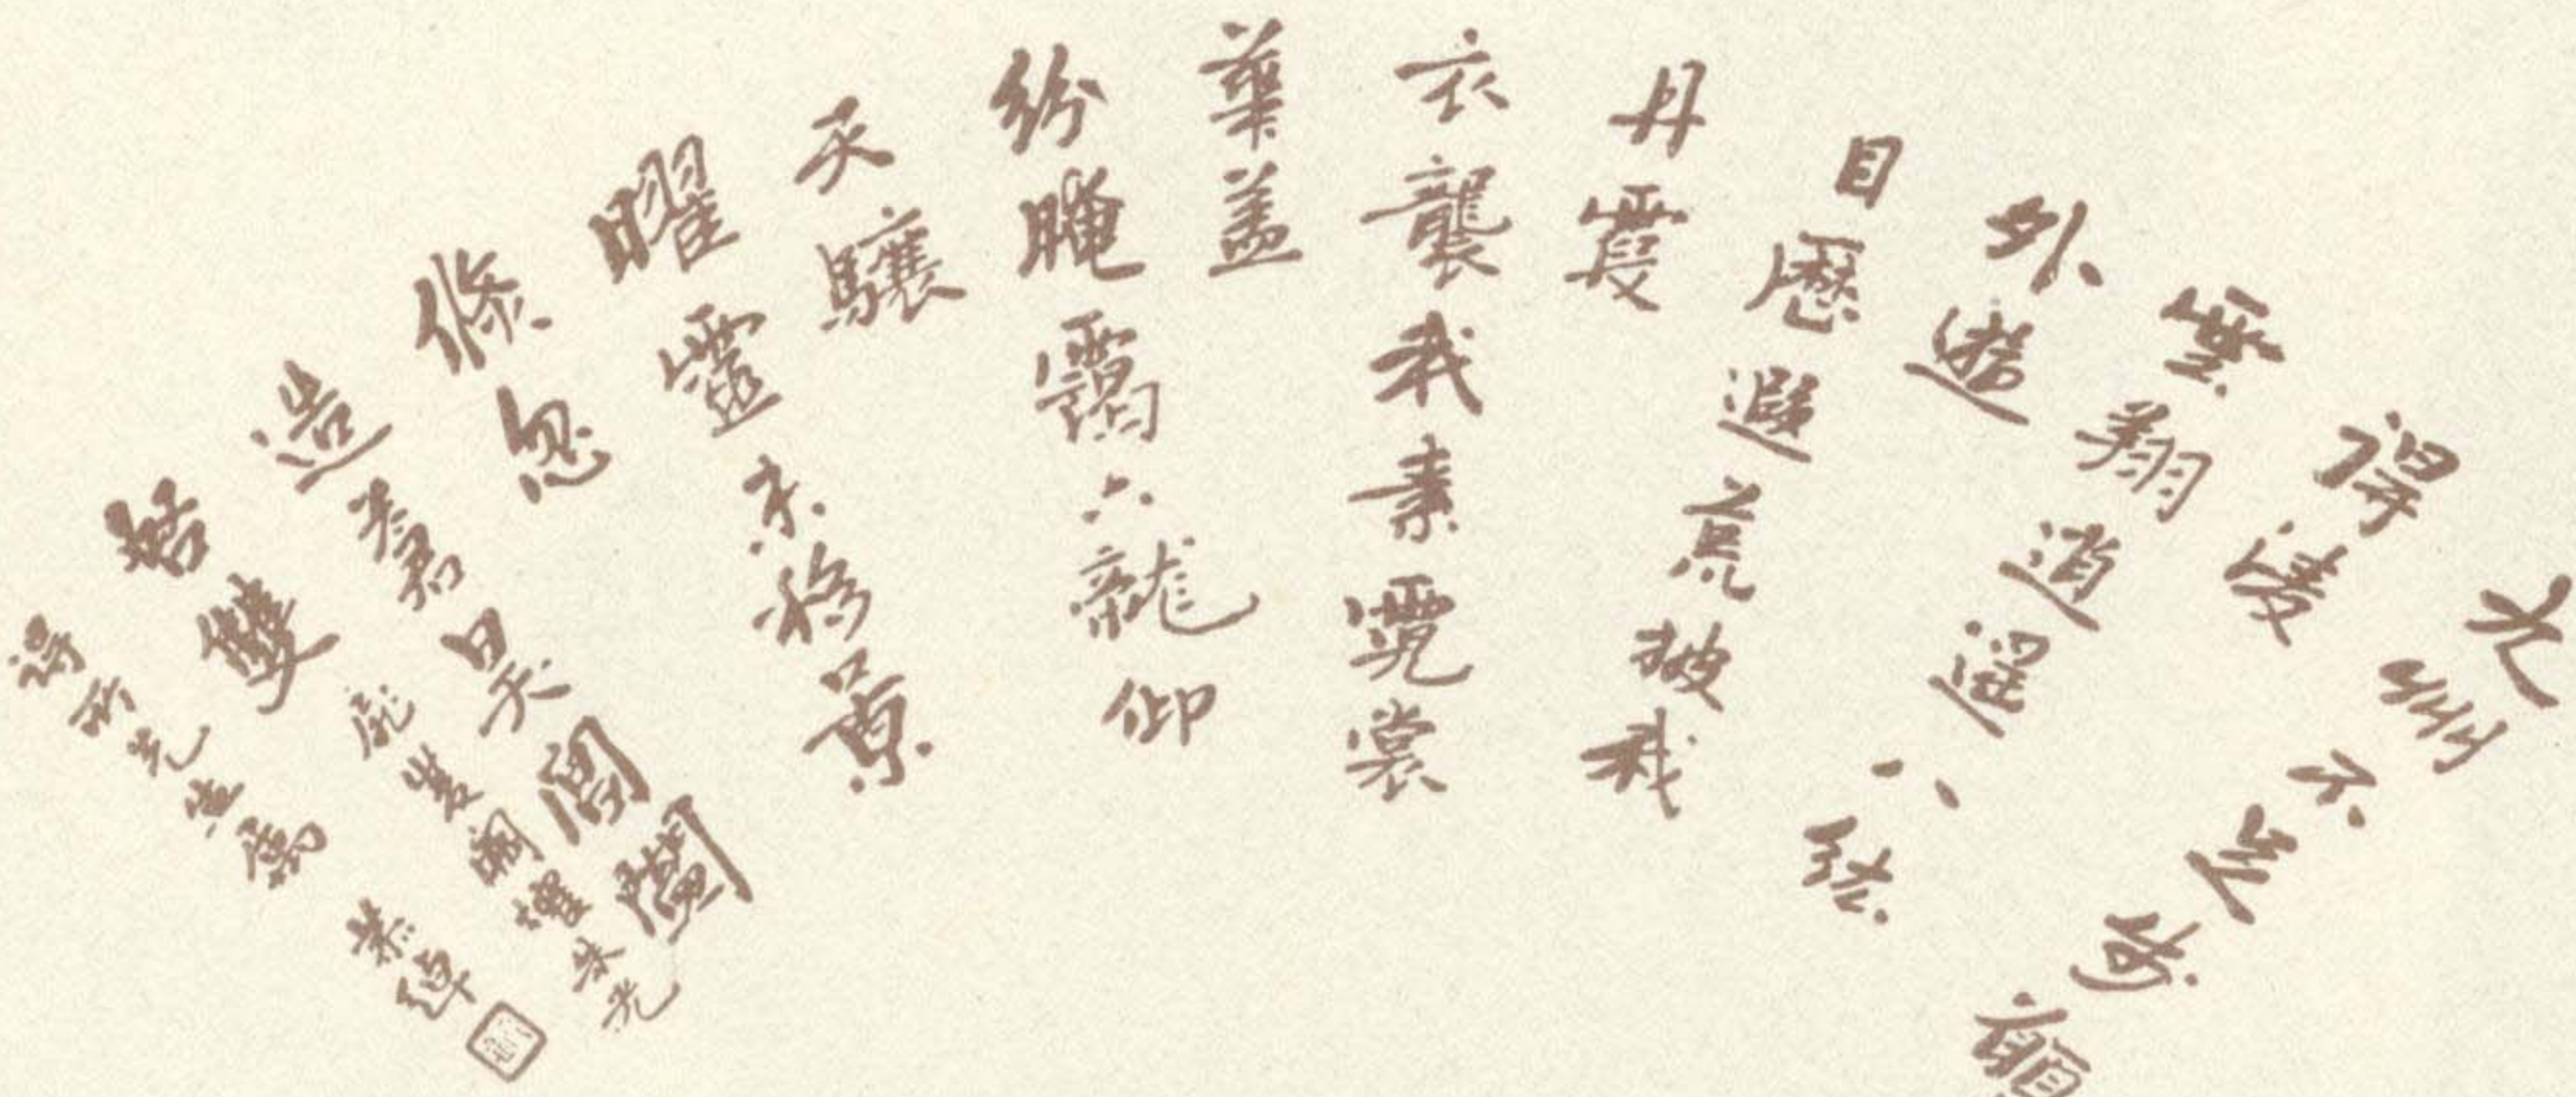 九州不足步願
得凌
雲翔逍遙八紘
外遊
目歷遐荒披我
丹霞
衣襲我素霓裳
華蓋
紛晻靄六龍仰
天驤
曜靈未移景
倏忽
造蒼昊閶闔
啓雙闕曜朱光
得所先生屬